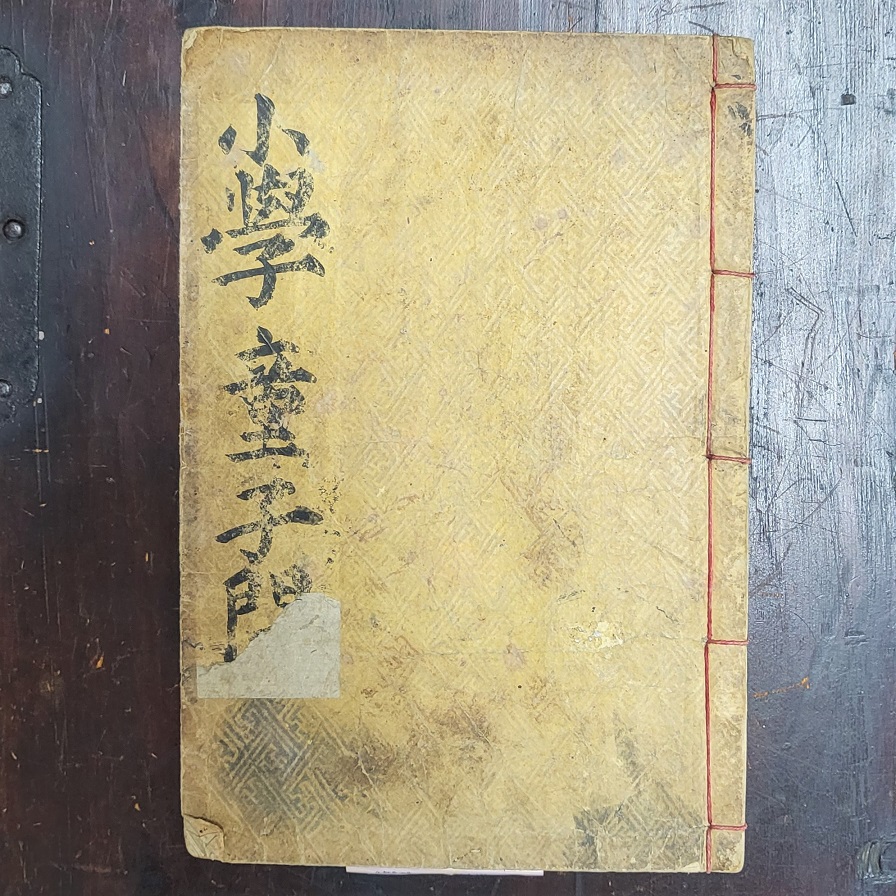 小學 童子門